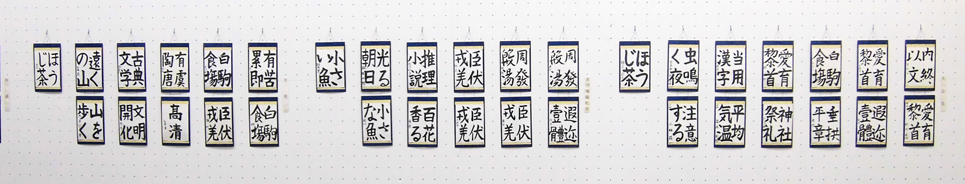 愛育
黎首
愛育
黎首
遐迩
壹體
白駒
食場
垂拱
平章
愛育
黎首
神社
祭礼
当用
漢字
平均
気温
虫鳴
く夜
注意
する
ほう
じ茶
周發
殷湯
遐迩
壹體
周發
殷湯
臣伏
戎羌
臣伏
戎羌
臣伏
戎羌
推理
小説
百花
香る
光る
朝日
小さ
な魚
小さ
い魚
白駒
食場
白駒
食場
臣伏
戎羌
有虞
陶唐
高清
古典
文学
文明
開化
遠く
の山
山を
歩く
ほう
じ茶